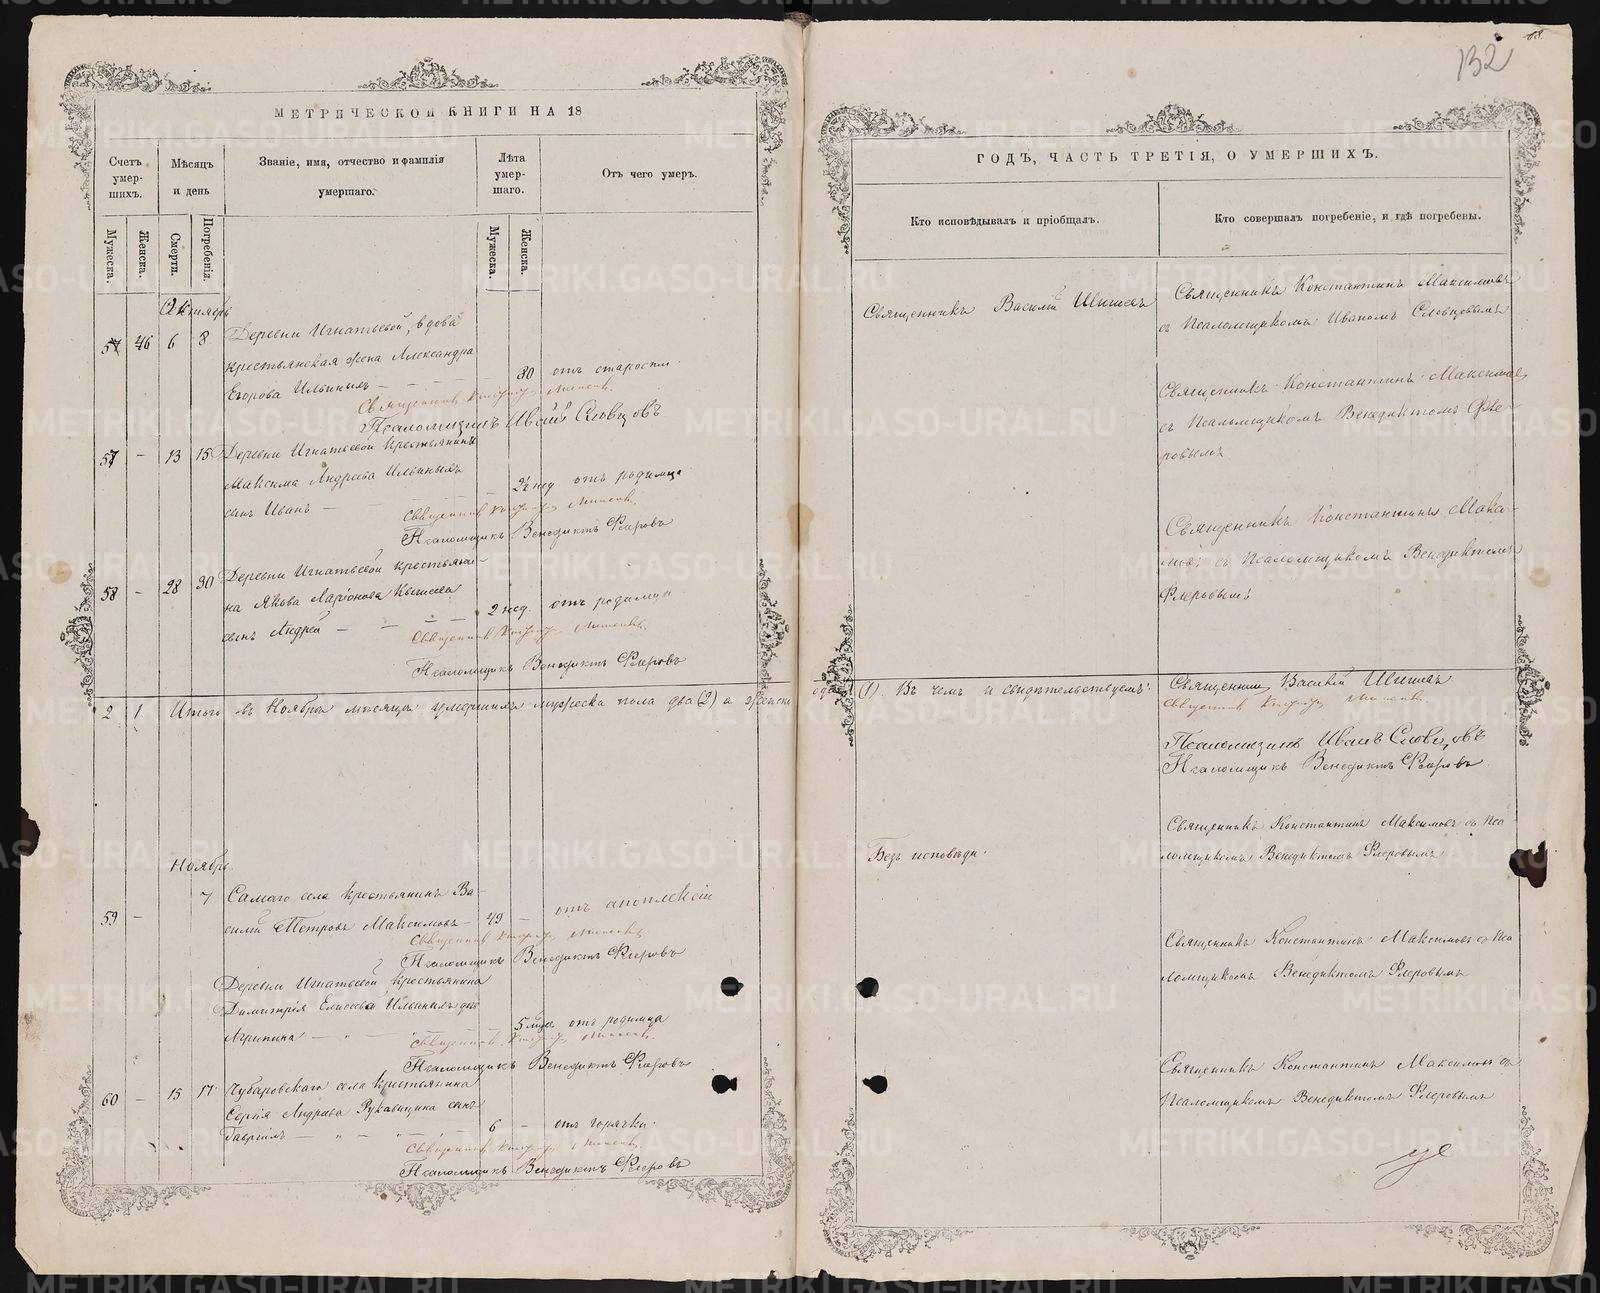 132
МЕТРИЧЕСКОЙ КНИГИ НА 18
Счетъ умерших.
Мѣсяцъ и день
Званіе, имя, отчество и фамилія умершаго.
Лѣта умершаго.
Отъ чего умеръ.
Мужеска.
Женска.
Смерти.
Погребенія.
Мужеска.
Женска.
Октябрь
46 6 8 Деревни Игнатьевой, вдова
крестьянская жена Александра
Егорова Ильиныхъ 80 отъ старости
Псаломщикъ Иванъ Словцовъ
57 - 13 15 Деревни Игнатьевой крестьянина
Максима Андреева Ильиныхъ
сынъ Иванъ 2½ нед. отъ родимца
Псаломщикъ Венедиктъ Флеровъ
58 - 28 30 Деревни Игнатьевой крестьяни-
на Якова Ларіонова
сынъ Андрей 2 нед. отъ родимца
Псаломщикъ Венедиктъ Флеровъ
2 1 Итого въ Ноябрѣ мѣсяцѣ умершихъ мужеска пола два (2) а женска
Ноябрь
59 - 7 Самаго села крестьянинъ Ва-
силій Петровъ Максимовъ 49 - отъ апоплексіи
Псаломщикъ Венедиктъ Флеровъ
Деревни Игнатьевой крестьянина
Димитрія Елисеева Ильиныхъ дочь
Агрипина 5 мѣс. отъ родимца
Псаломщикъ Венедиктъ Флеровъ
60 - 15 17 Чубаровскаго села крестьянина
Сергія Андреева Рукавицина сынъ
Гавріилъ 6 - отъ горячки.
Псаломщикъ Венедиктъ Флеровъ
ГОДЪ, ЧАСТЬ ТРЕТІЯ, О УМЕРШИХЪ.
Кто исповѣдывалъ и пріобщалъ.
Кто совершалъ погребеніе, и гдѣ погребены.
Священникъ Василій Шишевъ
Священникъ Константинъ Максимовъ
съ Псаломщикомъ Иваномъ Словцовымъ
Священникъ Константинъ Максимовъ
съ Псаломщикомъ Венедиктомъ Фле-
ровымъ
Священникъ Константинъ Макси-
мовъ съ Псаломщикомъ Венедиктомъ
Флеровымъ
(1). Въ чемъ и свидѣтельствуемъ:
Священникъ Василій Шишевъ
Псаломщикъ Иванъ Словцовъ
Псаломщикъ Венедиктъ Флеровъ
Безъ исповѣди.
Священникъ Константинъ Максимовъ съ Пса
ломщикомъ Венедиктомъ Флеровымъ
Священникъ Константинъ Максимовъ съ Пса
ломщикомъ Венедиктомъ Флеровымъ
Священникъ Константинъ Максимовъ съ
Псаломщикомъ Венедиктомъ Флеровымъ
METRIKI.GASO-URAL.RU